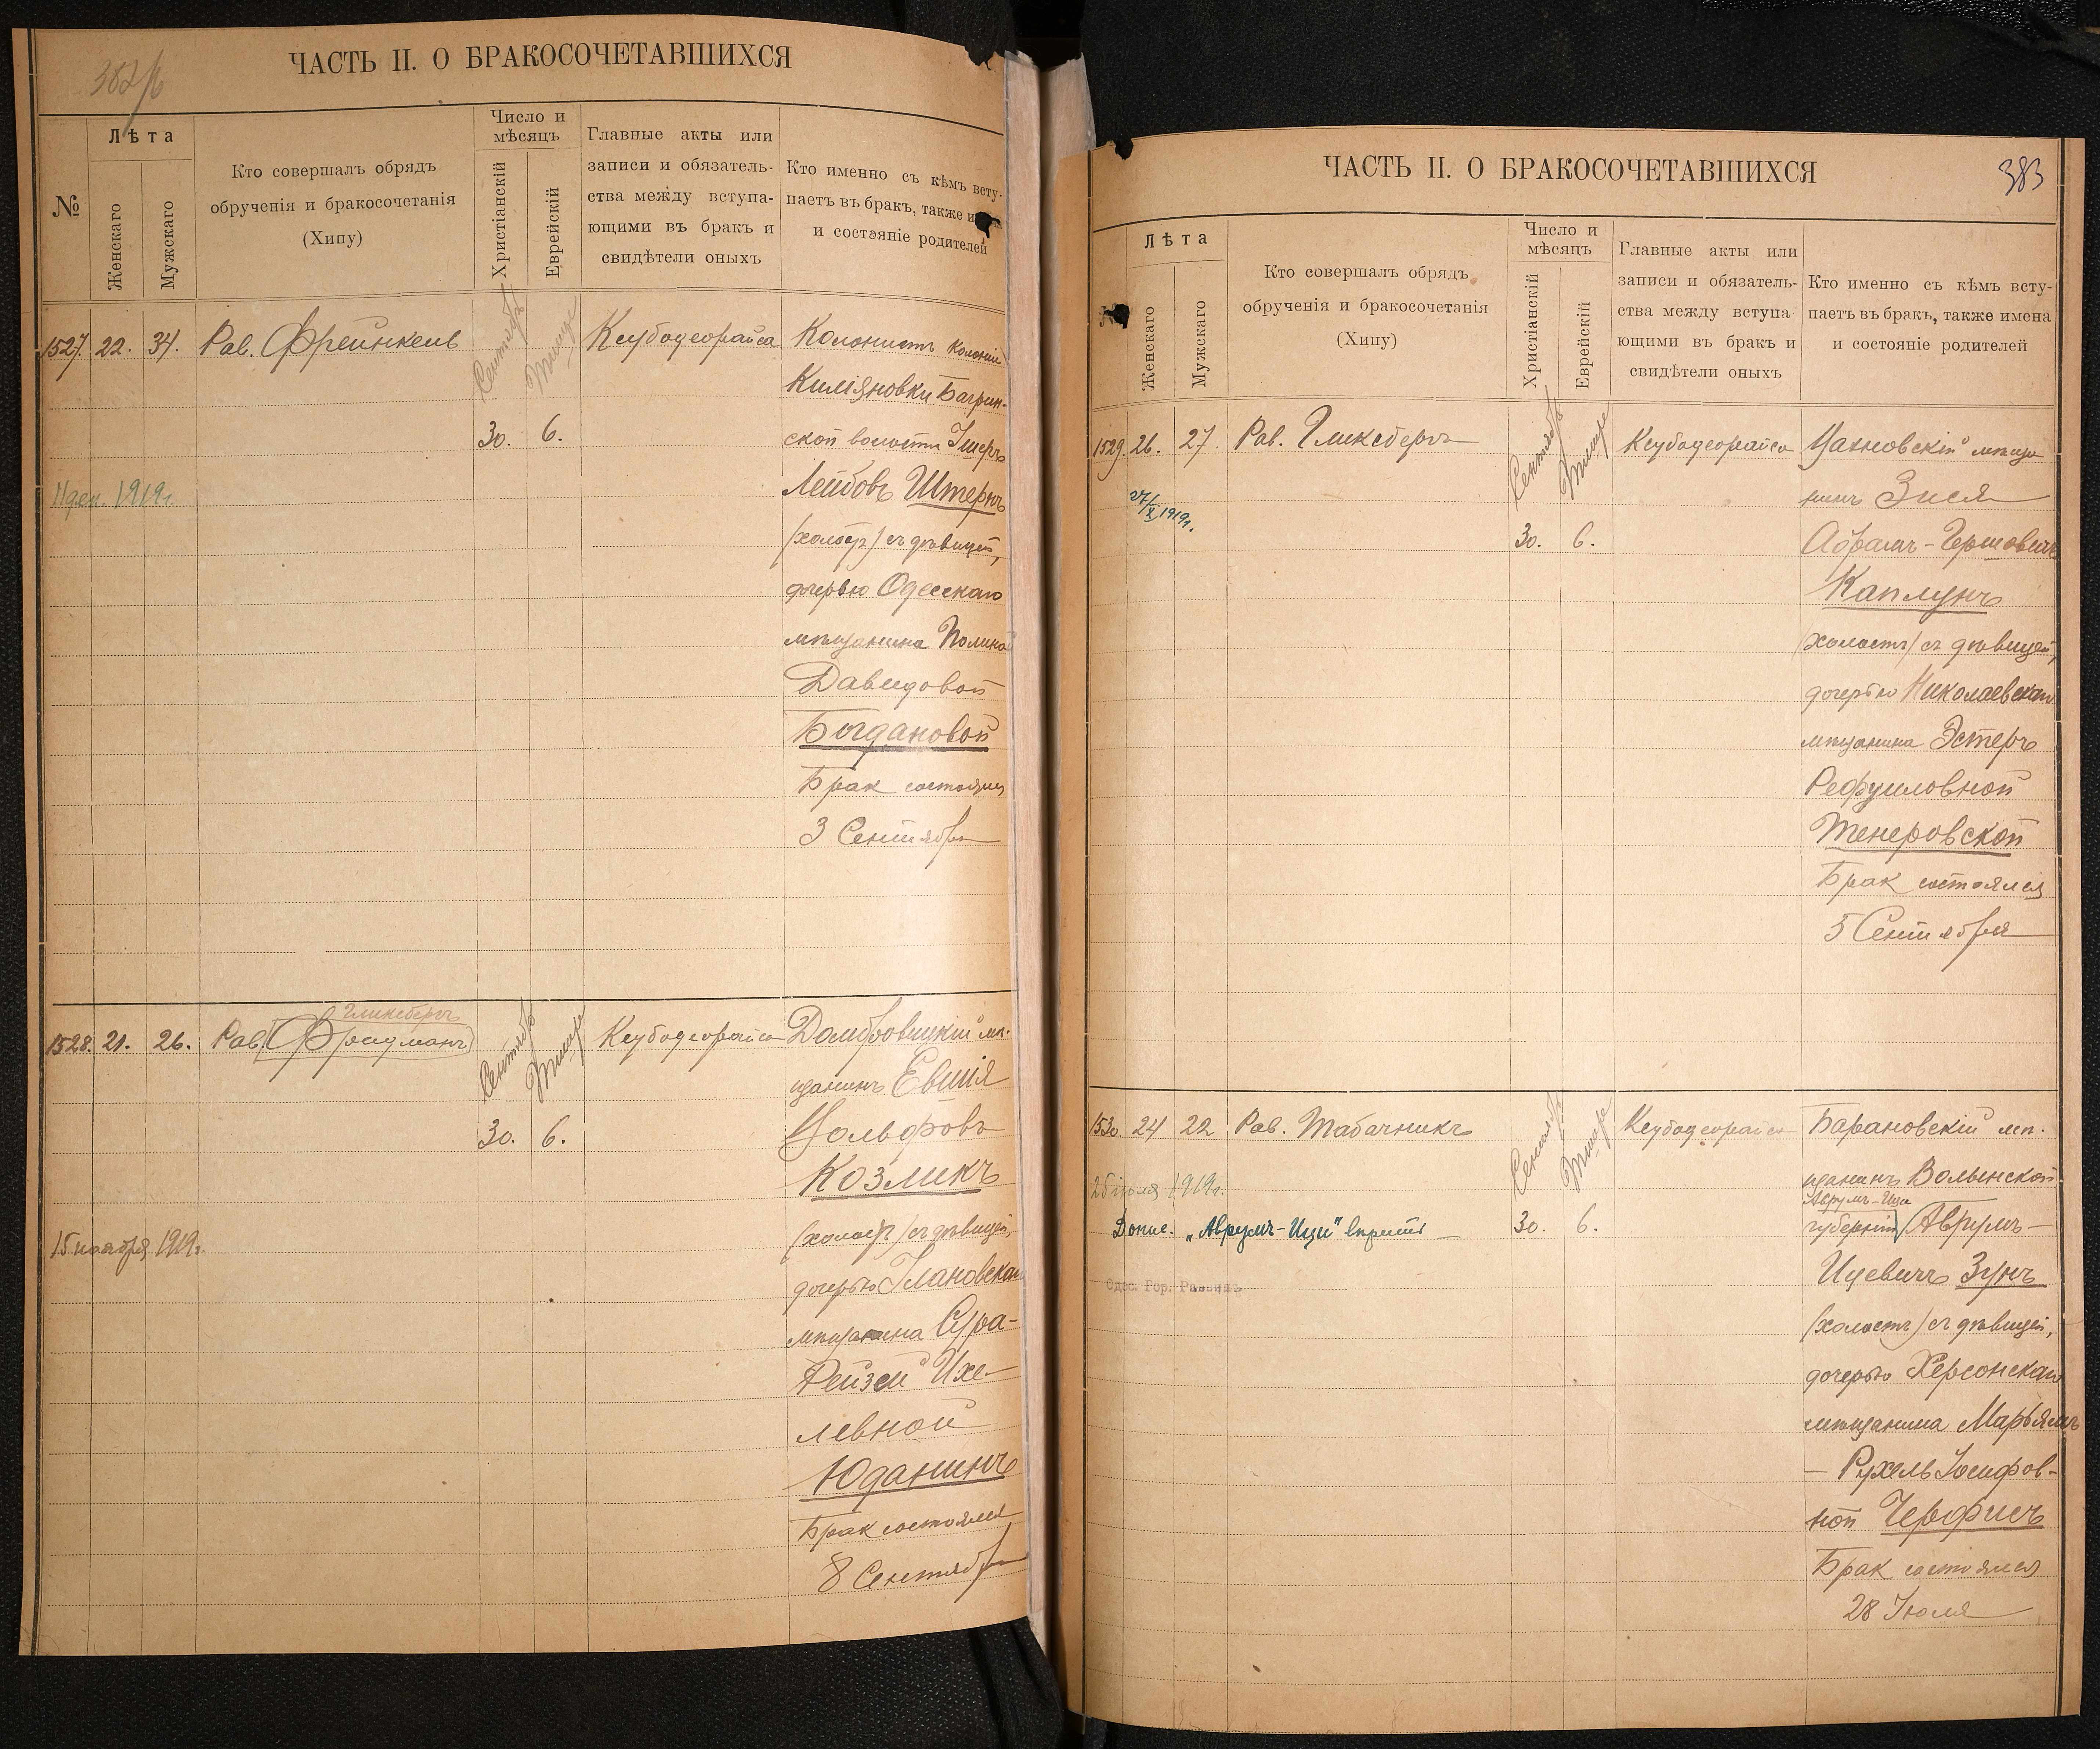 382/б
ЧАСТЬ II. О БРАКОСОЧЕТАВШИХСЯ
№
Лѣта
Женскаго
Мужскаго
Кто совершалъ обрядъ
обрученія и бракосочетанія
(Хипу)
Число и
мѣсяцъ
Христіанскій
Еврейскій
Главные акты или
записи и обязатель-
ства между вступа-
ющими въ бракъ и
свидѣтели оныхъ
Кто именно съ кѣмъ всту-
паетъ въ бракъ, также и
и состояніе родителей
1527. 22. 34. Рав. Френкель
Сентябрь Тишре
30. 6.
Кеубодеорайса
Колонистъ колоніи
Киліяновки Багрин-
ской волости Ушеръ
Лейбовъ Штернъ
(холостъ) съ дѣвицей,
дочерью Одесскаго
мѣщанина Полиной
Давидовой
Богдановой
Брак состоялся
3 Сентября
11 дек. 1919г.
1528. 21. 26. Рав. (Фридманъ)
Гликсбергъ
Сентябрь Тишре
30. 6.
Кеубодеорайса
Домбровицкій мѣ-
щанинъ Евшія
Вольфовъ
Козликъ
(холостъ) съ дѣвицей,
дочерью Улановскаго
мѣщанина Сура-
Рейзей Ихе-
левной
Юданинъ
Брак состоялся
8 Сентября
15 ноября 1919г.
ЧАСТЬ II. О БРАКОСОЧЕТАВШИХСЯ
383
Лѣта
Женскаго
Мужскаго
Кто совершалъ обрядъ
обрученія и бракосочетанія
(Хипу)
Число и
мѣсяцъ
Христіанскій
Еврейскій
Главные акты или
записи и обязатель-
ства между вступа
ющими въ бракъ и
свидѣтели оныхъ
Кто именно съ кѣмъ всту-
паетъ въ бракъ, также имена
и состояніе родителей
1529. 26. 27. Рав. Гликсбергъ
Сентябрь Тишре
30. 6.
Кеубодеорайса
мѣща
нинъ Зися
Абрамъ-Гершовичъ
Каплунъ
(холостъ) съ дѣвицей,
дочерью Николаевскаго
мѣщанина Эстеръ
Рефуиловной
Тенеровской
Брак состоялся
5 Сентября
27/X 1919г.
1530. 24 22 Рав. Табачникъ
Сентябрь Тишре
30. 6.
Кеубодеорайса
Барановскій мѣ-
щанинъ Волынской
Аврумъ-Ици
губерніи Аврумъ-
Ицевичъ Зунъ
(холостъ) съ дѣвицей,
дочерью Херсонскаго
мѣщанина Марьямъ
- Рухель Іосифов-
ной Черфисъ
Брак состоялся
28 Іюля
25 іюля 1919г.
Допис. „Аврумъ-Ици"
Одес. Гор. Раввинъ